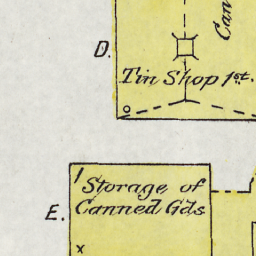 Can
D.
Tin Shop 1st.
1
Storage of
E. Canned Gds
x